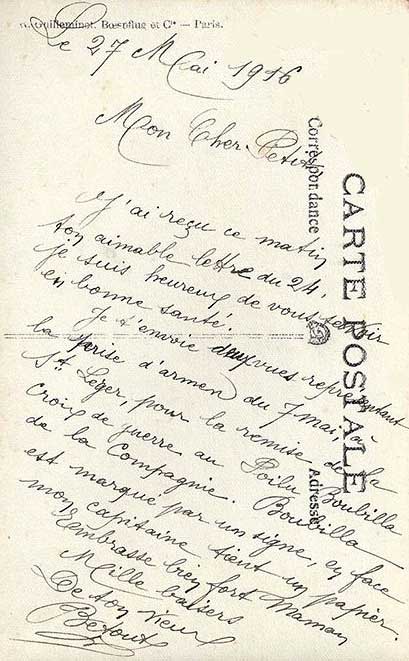 G. Guilleminot, Bœspflug et Cie — Paris.
Le 27 Mai 1916
Mon Cher Petit
J'ai reçu ce matin
ton aimable lettre du 24,
je suis heureux de vous savoir
en bonne santé.
Je t'envoie deux vues représentant
la prise d'armes du 7 mai, à
St Léger, pour la remise de la
Croix de guerre au Poilu Boubilla
de la Compagnie. Boubilla
est marqué par un signe, en face
mon capitaine tient un papier.
Embrasse bien fort Maman
Mille baisers
De ton vieux
CARTE POSTALE
Correspondance
Adresse